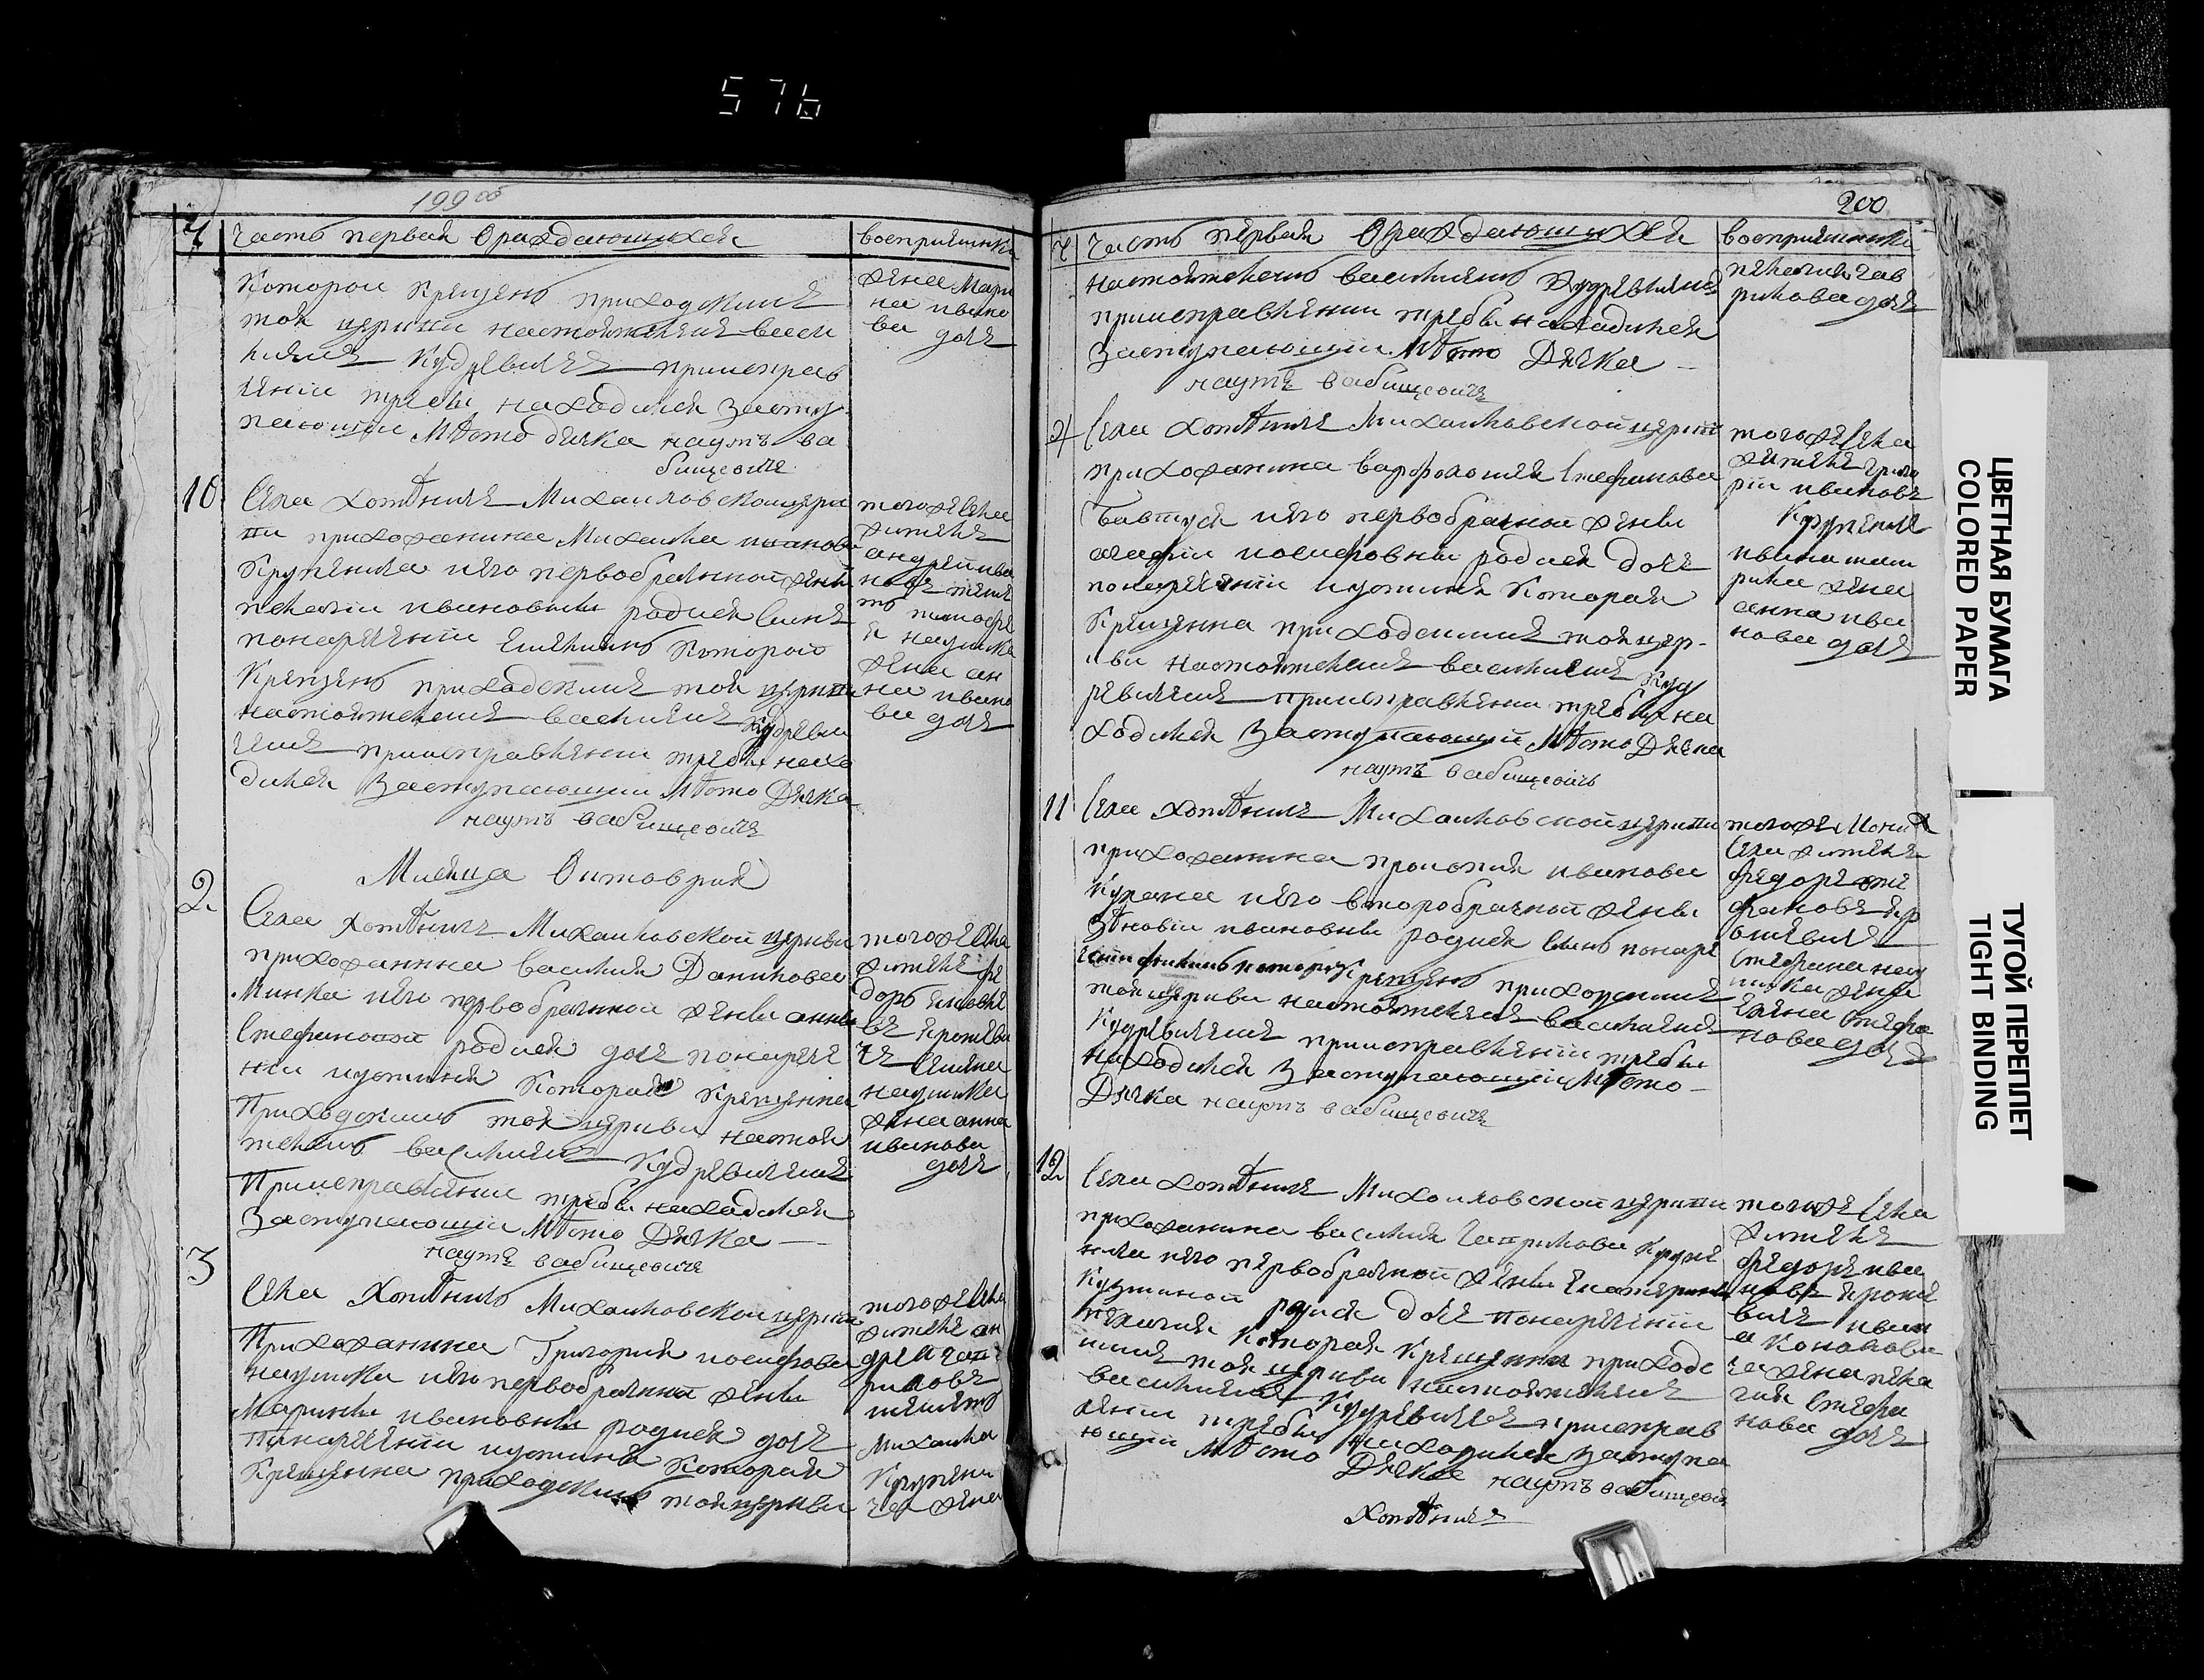 576
199 об
Ч
Часть первая О раждающихся
восприемники
Которой крещенъ приходскимъ
тоя церкви настоятелемъ васи
лиемъ Кудревичемъ при исправ
лении требы находился засту
пающий место дьячка наумъ ва
бищевичъ
жена Мари
на ивано
ва дочь
10
Села хотеничъ Михаиловской церк
ви прихожанина Михаила иванова
Крупенича и его первобрачной жены
пелагии ивановны родися сынъ
по наречении Емелианъ которого
Крещенъ приходскимъ тоя церкви
настоятелемъ василиемъ Кудреви
чемъ при исправлении требы нахо
дился Заступающий Место Дьячка
наумъ вабищевичъ
того же села
житель
андрей ива
новъ
жена ан
на ивано
ва дочь
Месяца Октоврия
2
Села хотеничъ Михаиловской церкви
прихожанина василия Данилова
Минка и его первобрачной жены анны
Стефановой родися дочь по нарече
нии иустина Которая Крещенна
Приходскимъ тоя церкви настоя
телемъ василиемъ Кудревичемъ
При исправлении требы находился
Заступающий Место Дьячка
наумъ вабищевичъ
того же села
житель фе
доръ
наумика
жена анна
иванова
дочь
3
Села Хотеничъ Михаиловской церкви
Прихожанина Григория иосифова
наумика и его первобрачной жены
Марины ивановны родися дочь
По наречении иустина Которая
Крещенна приходскимъ тоя церкви
того же села
житель ан
дрей гав
риловъ
Михаила
Крупени
ча жена
200
Ч
Часть первая О раждающихся
восприемники
настоятелемъ василиемъ Кудревичемъ
при исправлении требы находился
Заступающий Место Дьячка
наумъ вабищевичъ
пелагия гав
рилова дочь
Села хотеничъ Михаиловской церкви
прихожанина варфоломея Стефанова
и его первобрачной жены
агафии иосифовны родися дочь
по наречении иустиня Которая
Крещенна приходскимъ тоя цер-
кви настоятелемъ василиемъ Куд
ревичемъ при исправлении требы на
ходился Заступающий Место Дьячка
наумъ вабищевичъ
того же села
житель григо
рий ивановъ
Крупеничъ
ивана
жена
анна ива
нова дочь
11
Села хотеничъ Михаиловской церкви
прихожанина прокопия иванова
и его второбрачной жены
Зеновии ивановны родися сынъ по наре
чении которого Крещенъ приходскимъ
тоя церкви настоятелемъ василиемъ
Кудревичемъ при исправлении требы
находился Заступающий Место
Дьячка наумъ вабищевичъ
того же
села житель
федоръ
Стефана нау
мика жена
Елена Стефа
нова дочь
12
Села хотеничъ Михаиловской церкви
прихожанина василия Гаврилова Крупе
нича и его первобрачной жены Екатерины
Кузминой родися дочь по наречении
пелагия Которая Крещенна приходс
кимъ тоя церкви настоятелемъ
василиемъ Кудревичемъ при исправ
лении требы находился заступа
ющий Место Дьячка наумъ вабищевичъ
Хотеничъ
того же села
житель
федоръ ива
новъ
жена пела
гия Стефа
нова дочь
ЦВЕТНАЯ БУМАГА
COLORED PAPER
ТУГОЙ ПЕРЕПЛЕТ
TIGHT BINDING